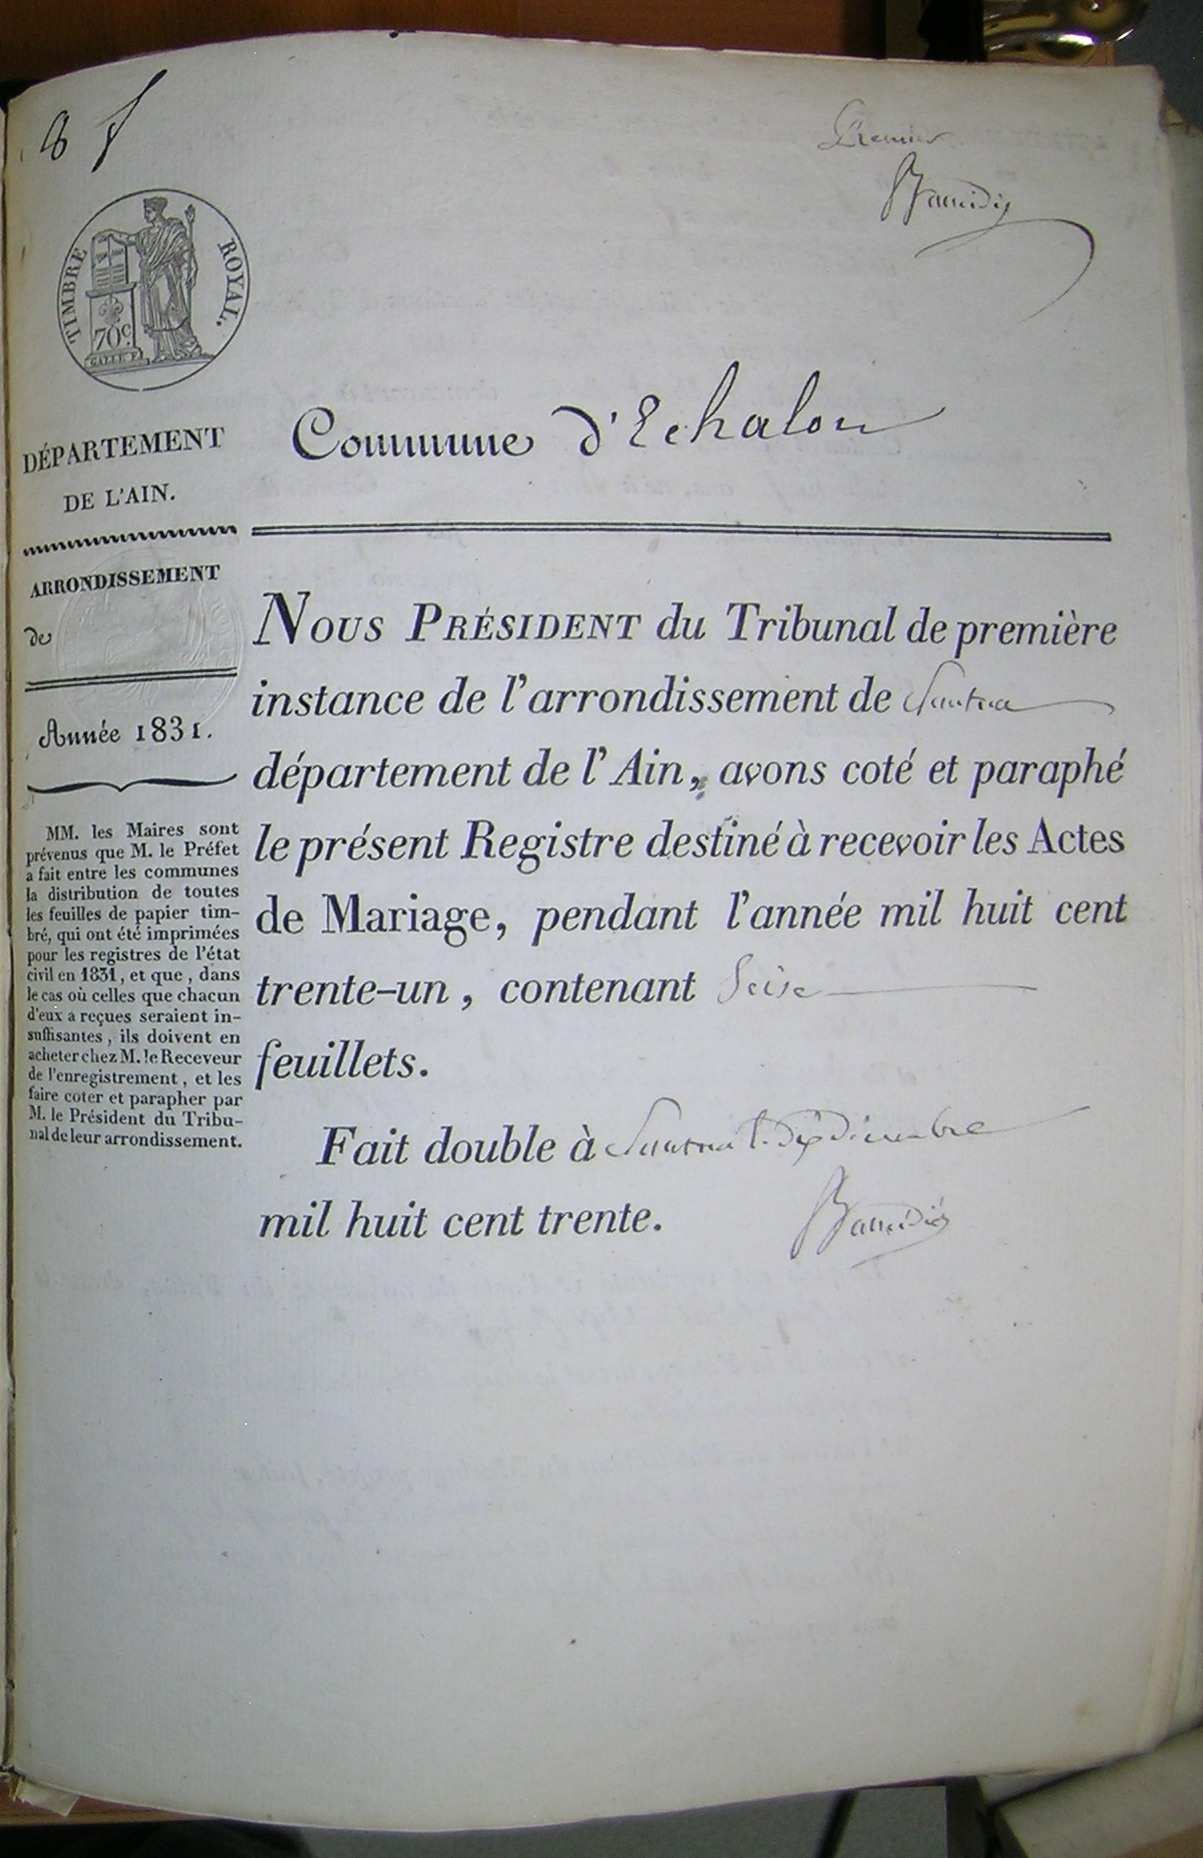 Premier
TIMBRE ROYAL.
70c
GALLE F.
DÉPARTEMENT
DE L'AIN.
Commune d'Echalon
ARRONDISSEMENT
de
Année 1831.
MM. les Maires sont
prévenus que M. le Préfet
a fait entre les communes
la distribution de toutes
les feuilles de papier tim-
bré, qui ont été imprimées
pour les registres de l'état
civil en 1831, et que, dans
le cas où celles que chacun
d'eux a reçues seraient in-
suffisantes, ils doivent en
acheter chez M. le Receveur
de l'enregistrement, et les
faire coter et parapher par
M. le Président du Tribu-
nal de leur arrondissement.
NOUS PRÉSIDENT du Tribunal de première
instance de l'arrondissement de Nantua
département de l'Ain, avons coté et paraphé
le présent Registre destiné à recevoir les Actes
de Mariage, pendant l'année mil huit cent
trente-un, contenant Seise
feuillets.
Fait double à Nantua le dix décembre
mil huit cent trente.